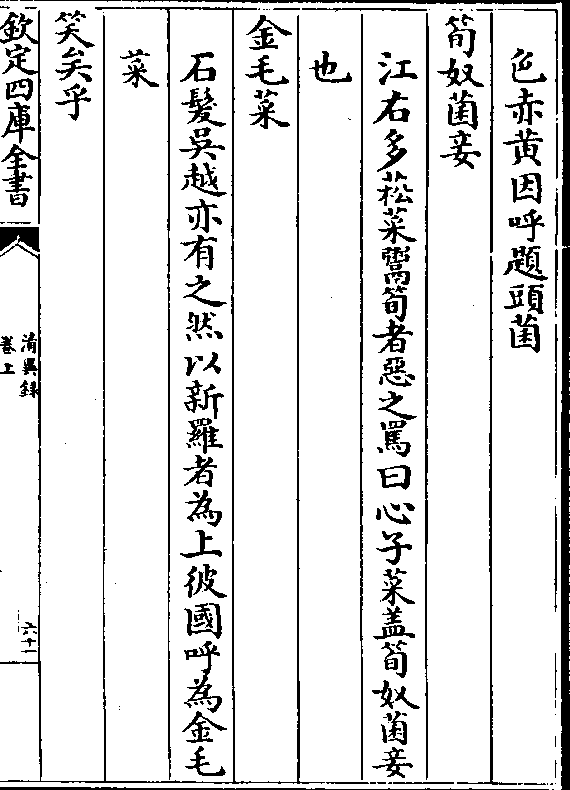 色赤黄因呼題頭菌
筍奴菌妾
江右多菘菜鬻筍者惡之罵曰心子菜盖筍奴菌妾
也
金毛菜
石髮吳越亦有之然以新羅者為上彼國呼為金毛
菜
笑矣乎
欽定四庫全書
清異錄
卷上
六十一